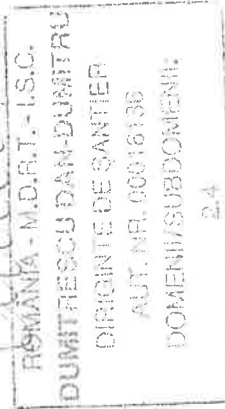 ROMANIA - M.D.R.T. - I.S.C.
DUMITRESCU DAN-DUMITRU
DIRIGINTE DE SANTIER
AUT. NR. 00018136
DOMENII/SUBDOMENII:
2.4